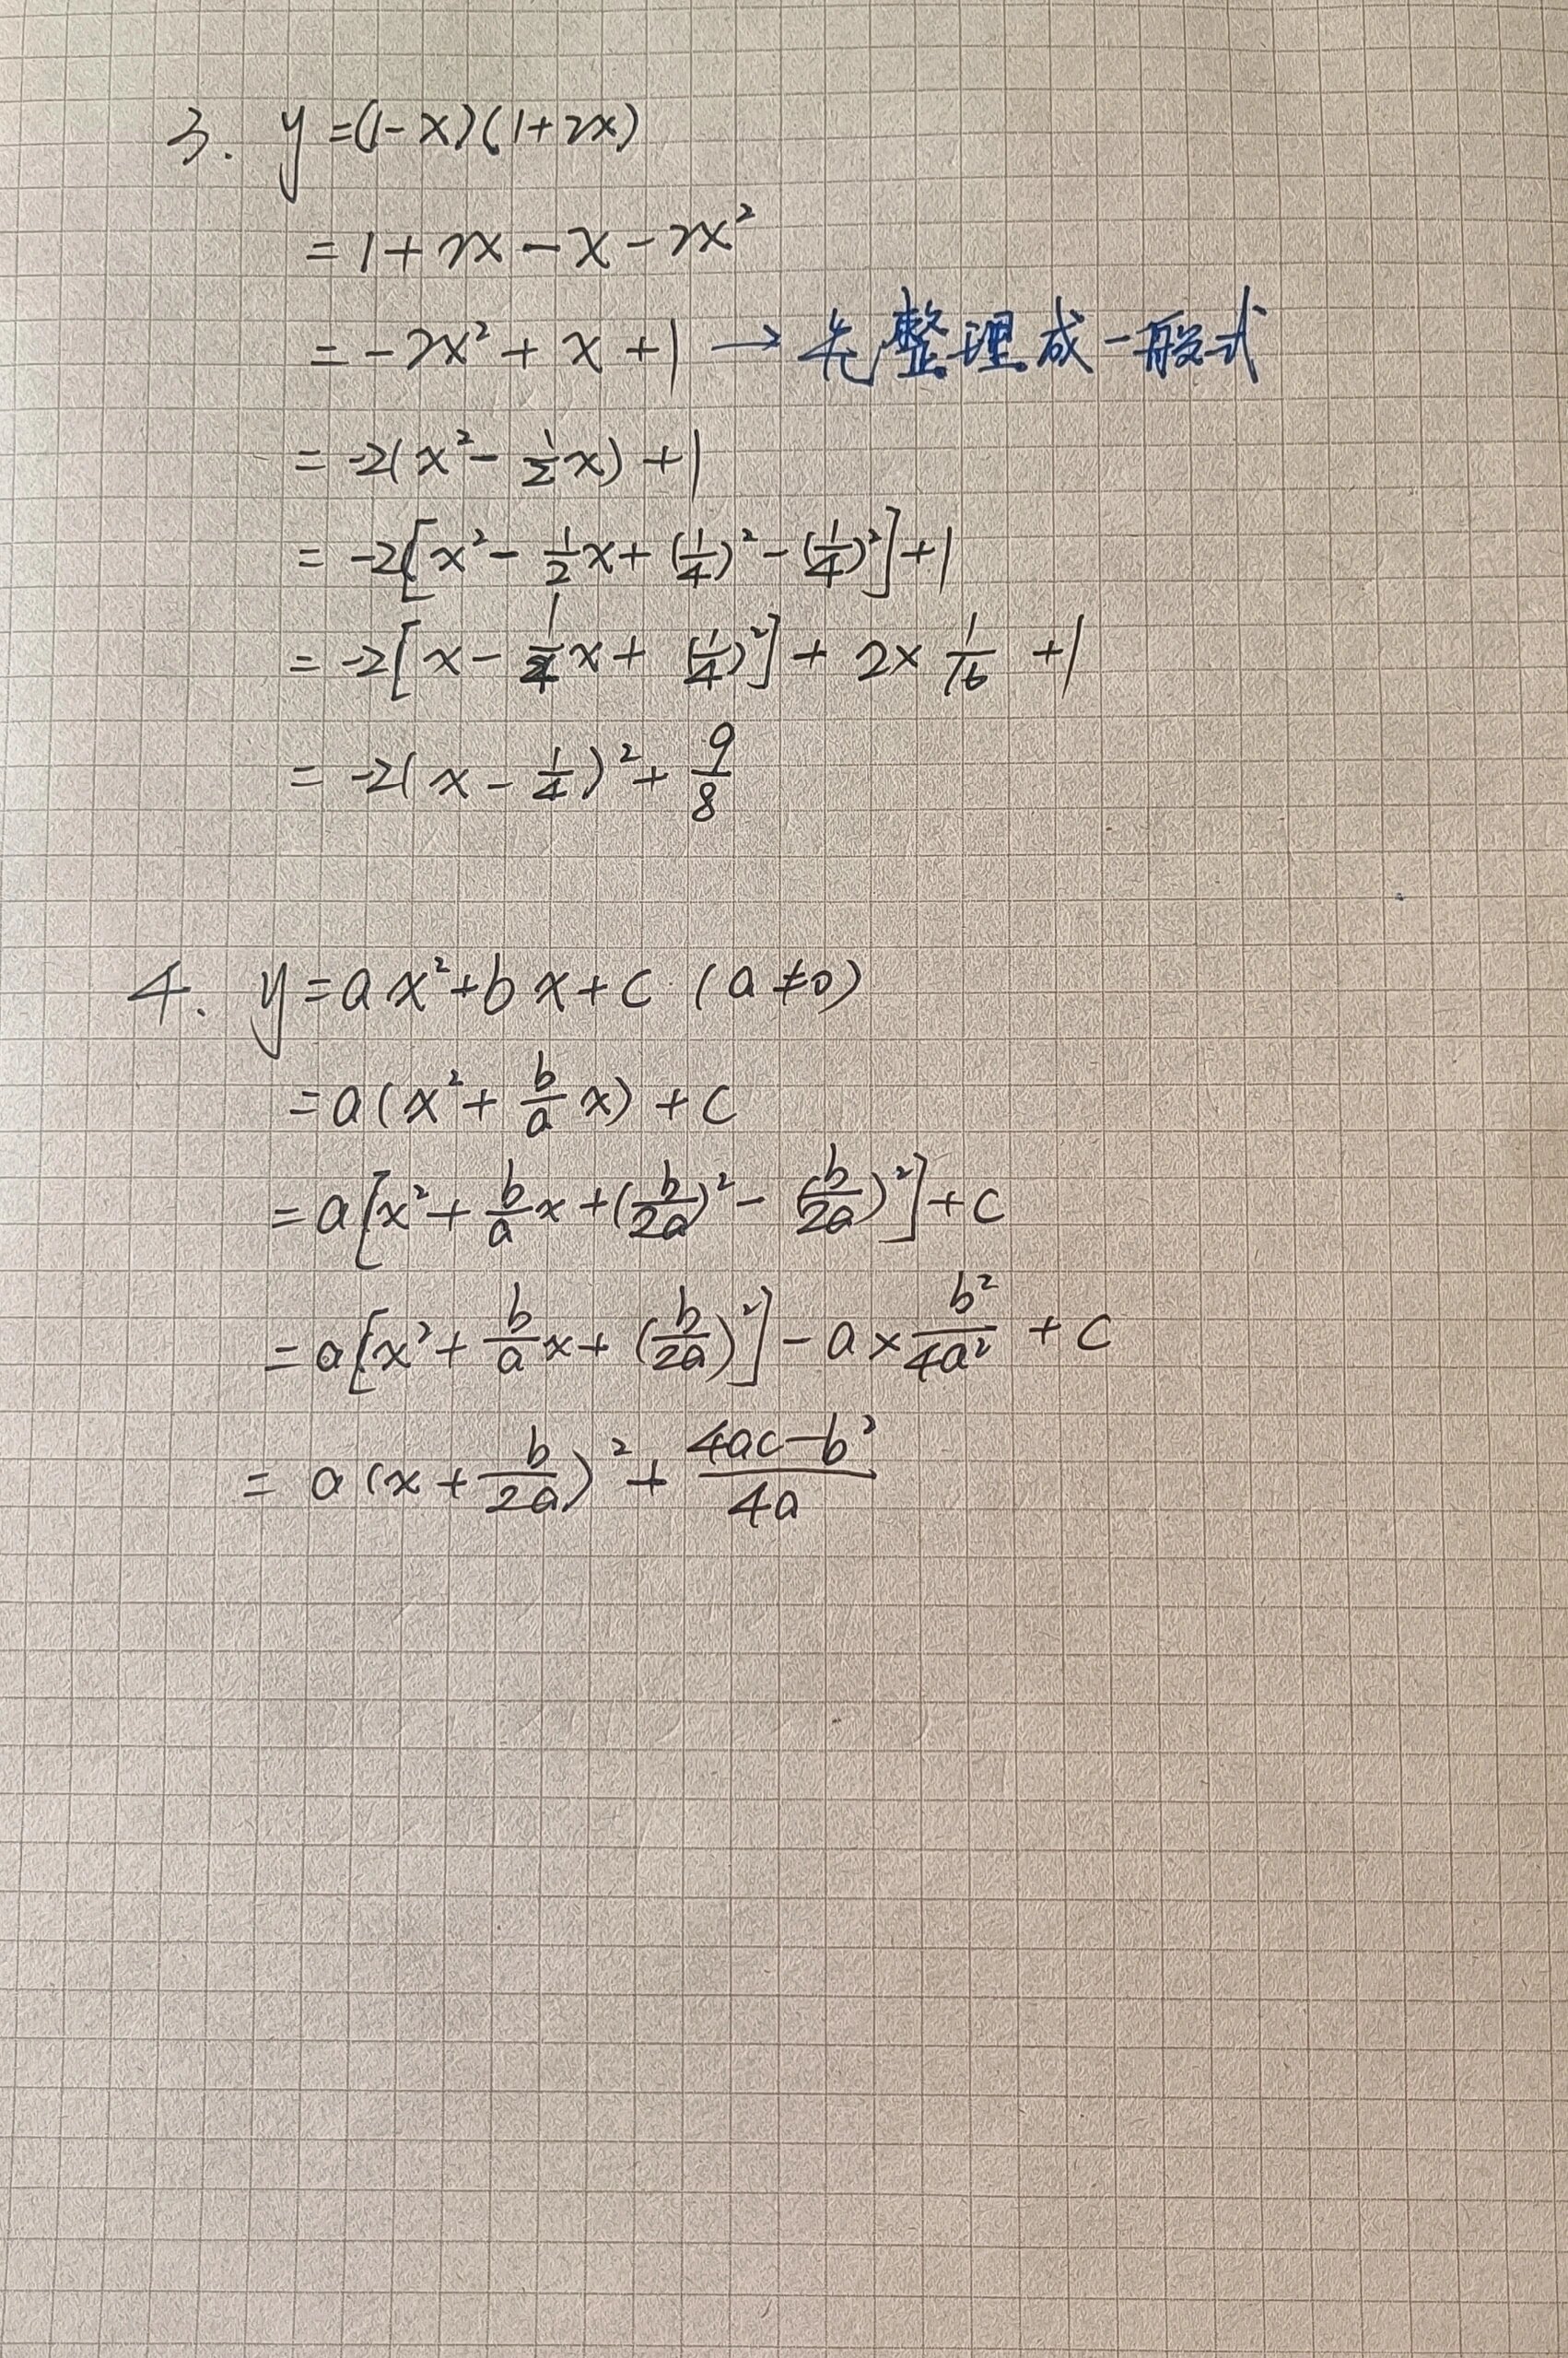 3. y=(1-x)(1+2x)
=1+2x-x-2x²
=-2x²+x+1→先整理成一般式
=-2(x²-½x)+1
=-2[x²-½x+(¼)²-(¼)²]+1
=-2[x-½x+(¼)²]+2×1/16+1
=-2(x-¼)²+9/8
4. y=ax²+bx+c (a≠0)
=a(x²+b/a x)+c
=a[x²+b/a x+(b/2a)²-(b/2a)²]+c
=a[x²+b/a x+(b/2a)²]-a×b²/4a²+c
=a(x+b/2a)²+(4ac-b²)/4a